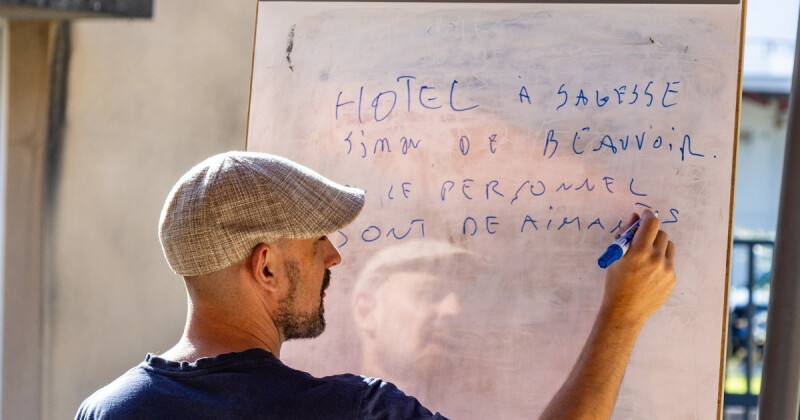 HOTEL À SAGESSE
SIMON DE BEAUVOIR.
LE PERSONNEL
SONT DE